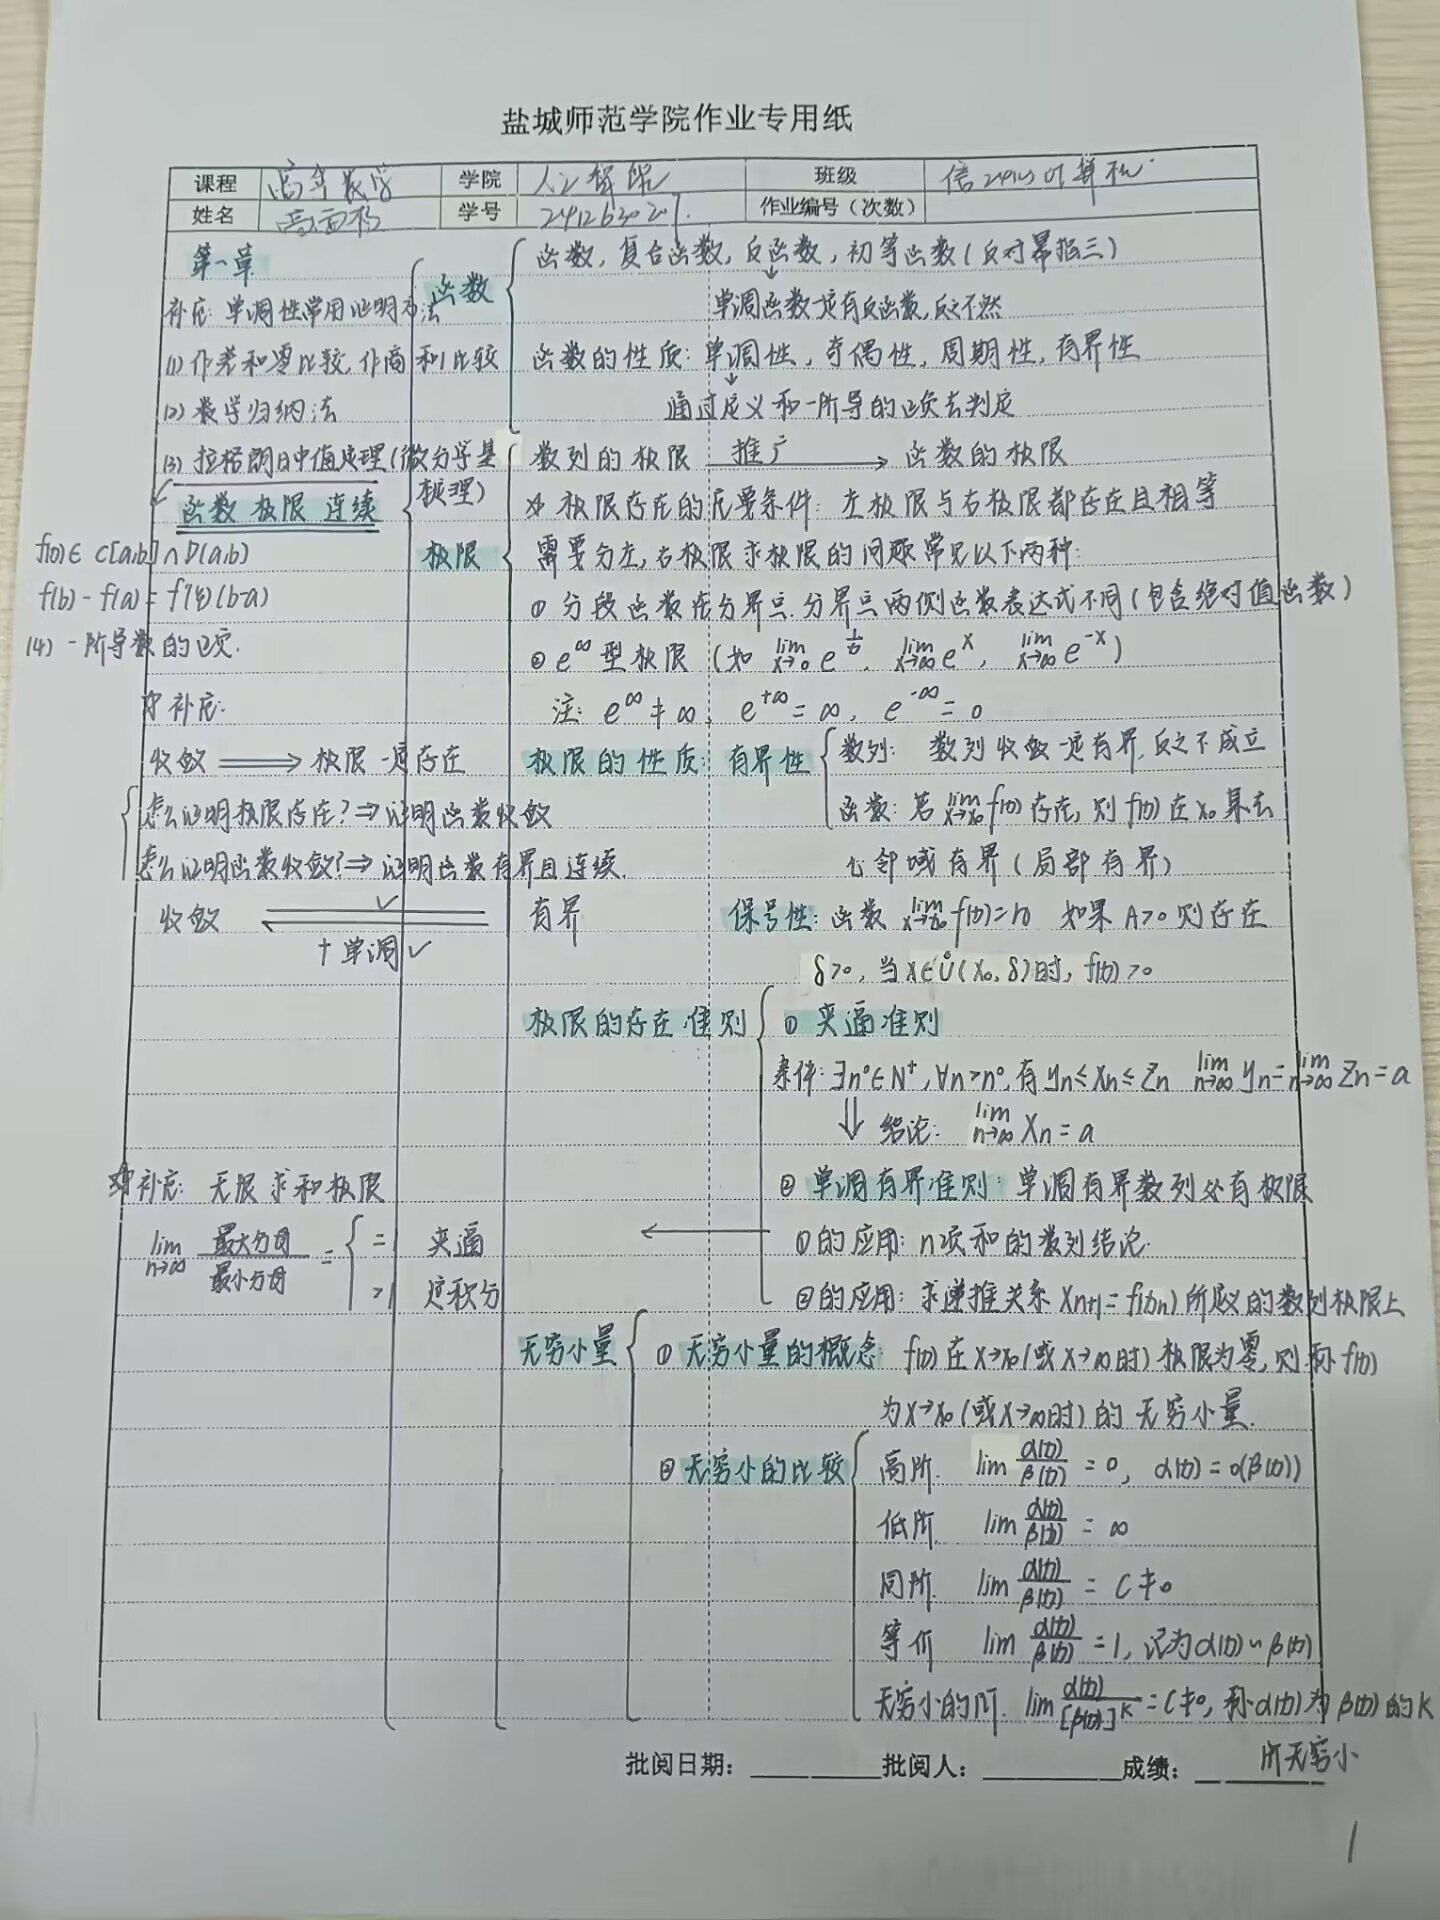 盐城师范学院作业专用纸
课程 高等数学 学院 人工智能 班级
姓名 学号 作业编号（次数）
第一章
补充：单调性常用证明方法
(1) 作差和零比较，作商和1比较
(2) 数学归纳法
(3) 拉格朗日中值定理（微分学基本定理）
函数 极限 连续
f(x)∈C[a,b]∩D(a,b)
f(b)-f(a)=f'(ξ)(b-a)
(4) 一阶导数的正负.
补充:
收敛 ⟹ 极限一定存在
怎么证明极限存在？⇒证明函数收敛
怎么证明函数收敛？⇒证明函数有界且连续.
收敛 有界
+单调✓
补充: 无限求和极限
lim n→∞ 最大分母/最小分母 = { =1 夹逼
>1 定积分
函数
函数，复合函数，反函数，初等函数（反对幂指三）
单调函数一定有反函数，反之不然
函数的性质：单调性，奇偶性，周期性，有界性
通过定义和一阶导的正负去判定
极限
数列的极限 推广→ 函数的极限
☆ 极限存在的充要条件：左极限与右极限都存在且相等
需要分左，右极限求极限的问题常见以下两种：
① 分段函数在分界点.分界点两侧函数表达式不同（包含绝对值函数）
② e^∞型极限（如 lim x→0 e^(1/x), lim x→∞ e^x, lim x→∞ e^-x）
注: e^∞≠∞, e^+∞=∞, e^-∞=0
极限的性质：有界性 { 数列: 数列收敛一定有界,反之不成立
函数：若 lim x→x₀ f(x)存在, 则f(x)在x₀某去
心邻域有界（局部有界）
保号性：函数 lim x→x₀ f(x)=A 如果A>0则存在
δ>0, 当x∈Ů(x₀,δ)时, f(x)>0
极限的存在准则 { ① 夹逼准则
条件：∃n₀∈N⁺,∀n>n₀,有yn≤xn≤zn lim n→∞ yn=lim n→∞ zn=a
⇓ 结论: lim n→∞ xn=a
② 单调有界准则：单调有界数列必有极限
←①的应用：n项和的数列结论.
②的应用：求递推关系xn+1=f(xn)所定义的数列极限上
无穷小量 { ① 无穷小量的概念: f(x)在x→x₀(或x→∞时)极限为零,则称f(x)
为x→x₀(或x→∞时)的无穷小量.
② 无穷小的比较 { 高阶. lim α(x)/β(x)=0, α(x)=o(β(x))
低阶. lim α(x)/β(x)=∞
同阶. lim α(x)/β(x)=C≠0
等价 lim α(x)/β(x)=1, 记为α(x)~β(x)
无穷小的阶. lim α(x)/[β(x)]^k=C≠0, 称α(x)为β(x)的k
阶无穷小
批阅日期：________批阅人：________成绩：________
1